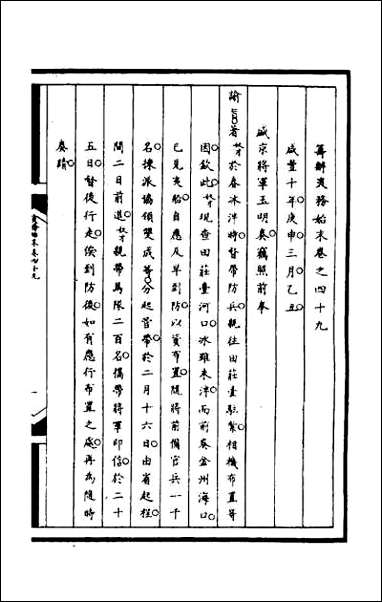 籌辦夷務始末卷之四十九
咸豐十年庚申三月乙丑
盛京將軍玉明奏竊照前奉
諭旨著奴才於春冰泮時督帶防兵親往田莊臺駐紮相機布置等
因欽此奴才現查田莊臺河口冰雖未泮而前葵金州海口
已見夷船自應及早到防以資布置隨將前備官兵一千
名揀派協領雙成等分起管帶於二月十六日由省起程
間二日前進奴才親帶馬隊二百名攜帶將軍印信於二十
五日督後行走俟到防後如有應行布置之處再為隨時
奏請
籌辦夷務始末卷四十九
一